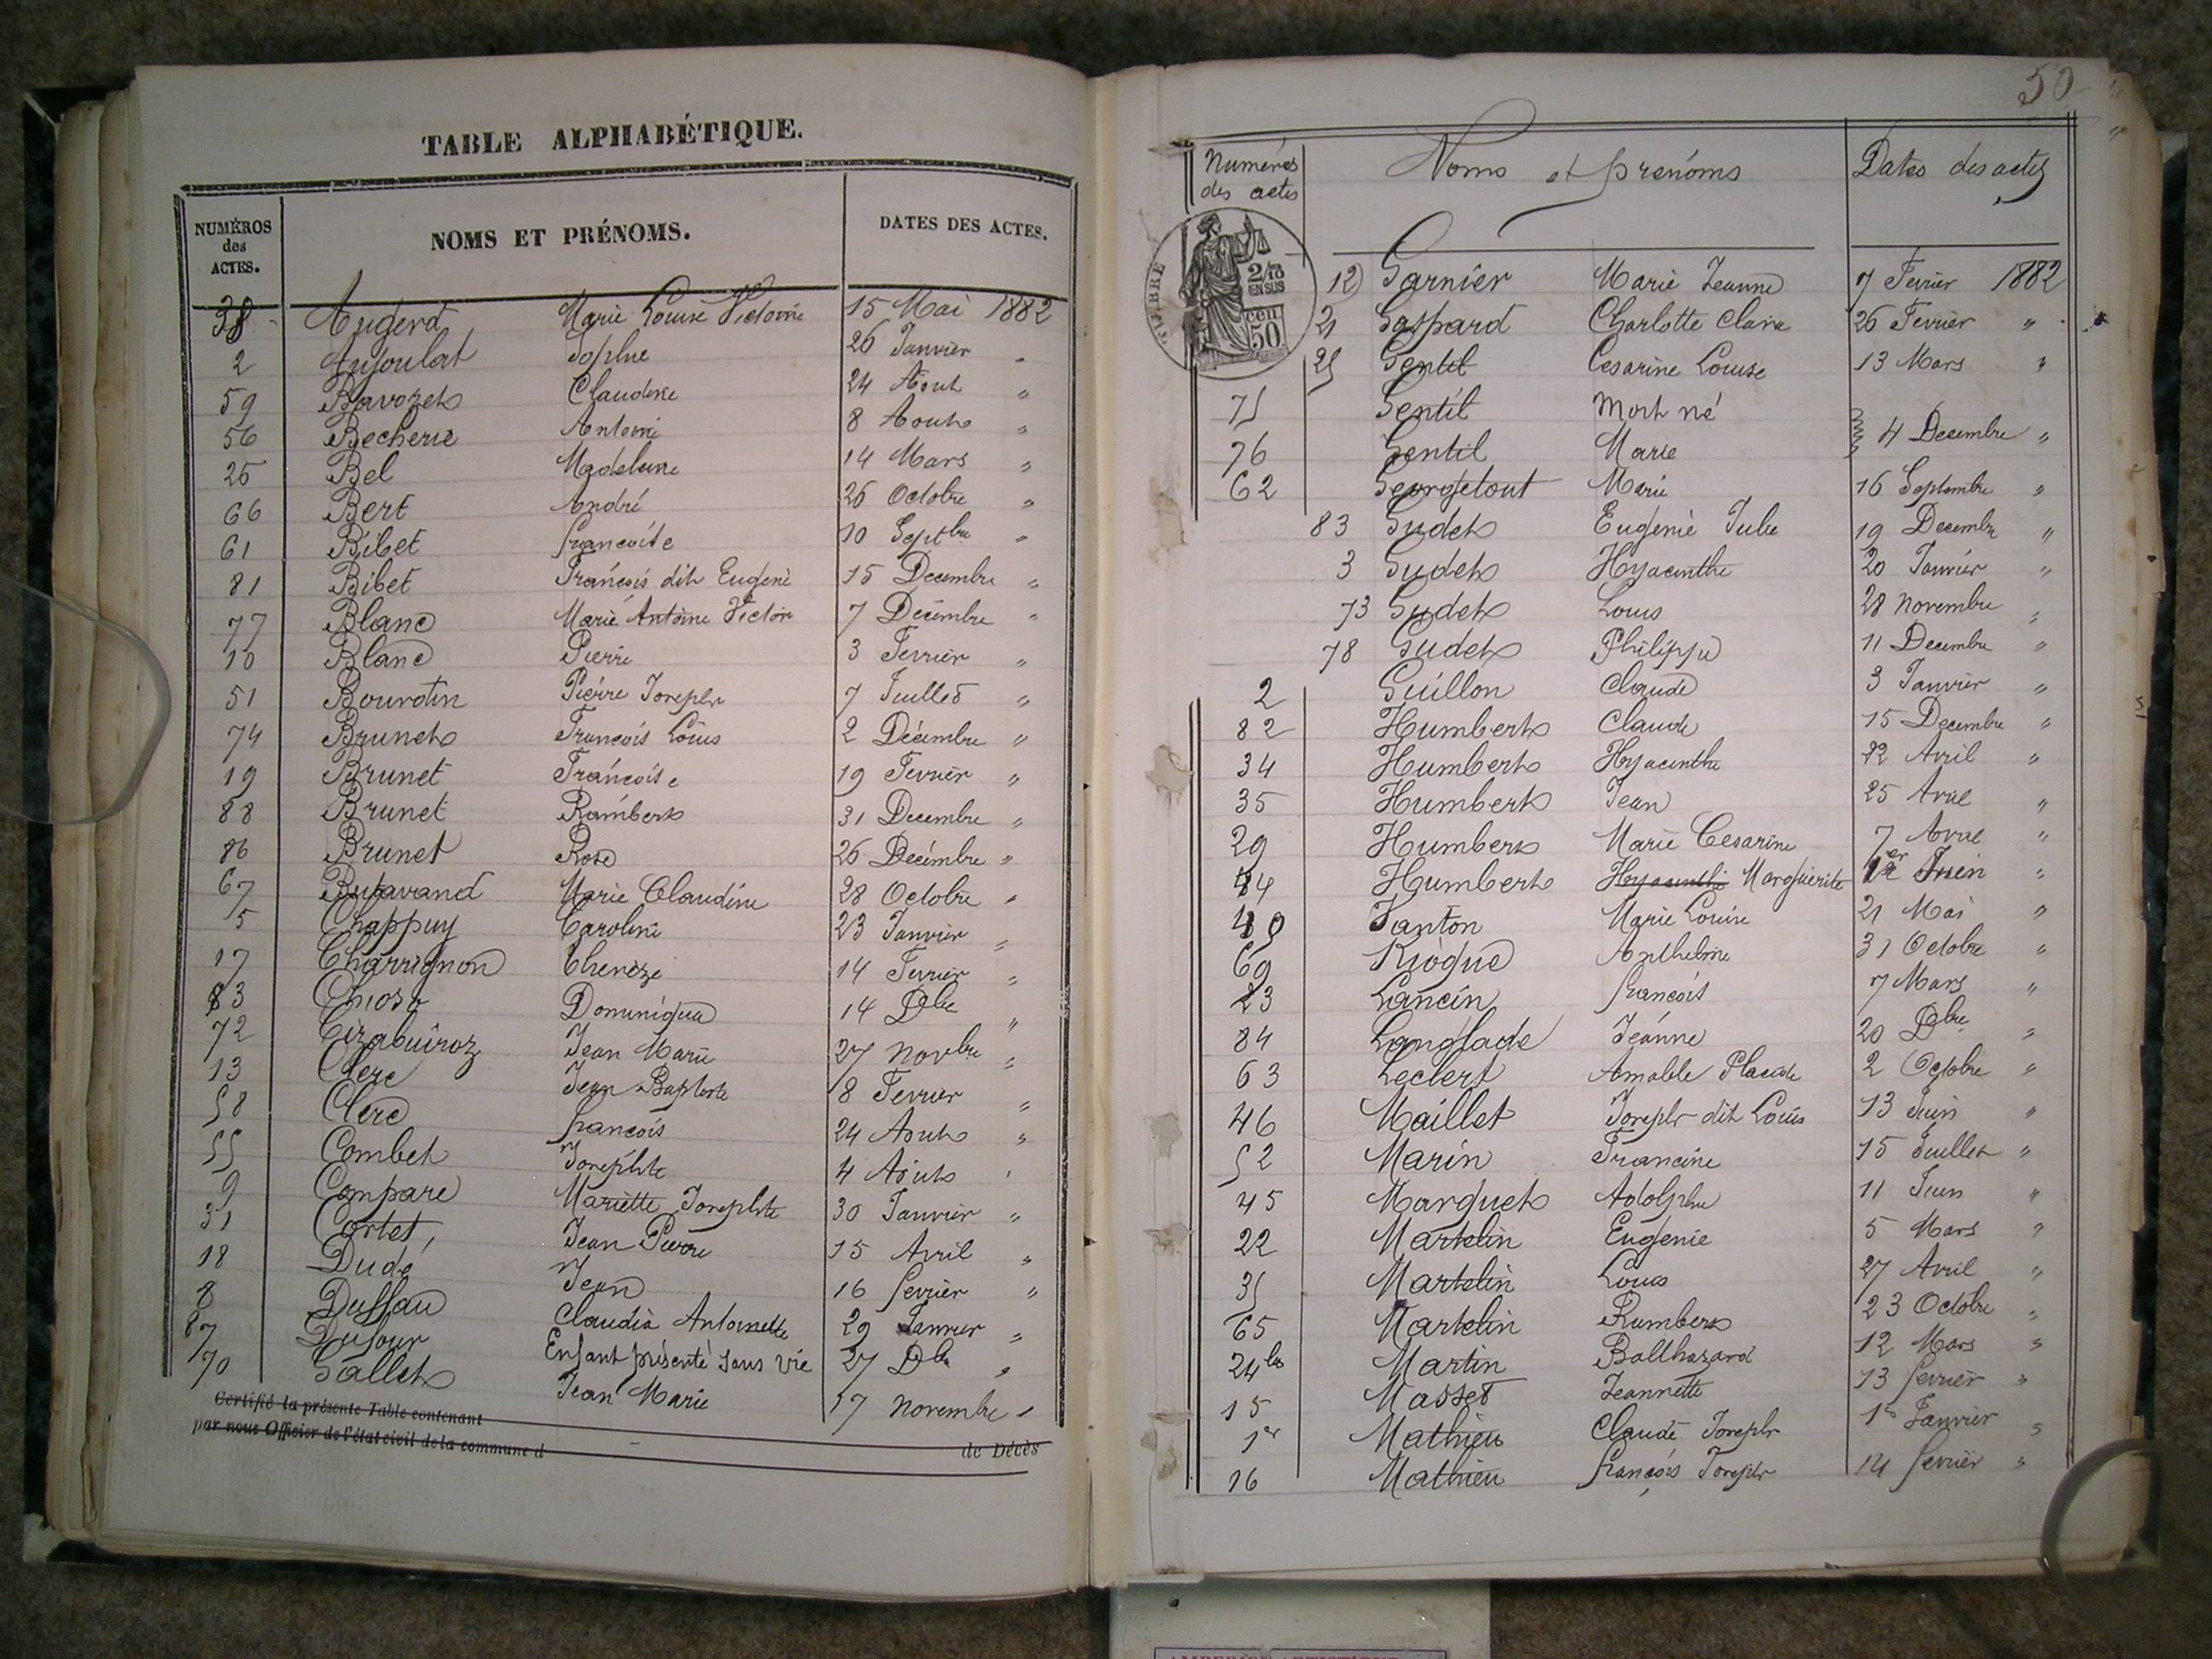 TABLE ALPHABÉTIQUE.
NUMÉROS des ACTES. NOMS ET PRÉNOMS. DATES DES ACTES.
38 Augerd Marie Louise Victorine 15 Mai 1882
2 Anjoulat Sophie 26 Janvier "
59 Bavozet Claudine 24 Aout "
56 Becherie Antoine 8 Aout "
25 Bel Madeleine 14 Mars "
66 Bert André 26 Octobre "
61 Bibet francoise 10 Septbre "
81 Bibet François dit Eugene 15 Decembre "
77 Blanc Marie Antoine Victor 7 Décembre "
10 Blanc Pierre 3 Fevrier "
51 Bourdin Pierre Joseph 7 Juillet "
74 Brunet François Louis 2 Décembre "
19 Brunet Françoise 19 Fevrier "
88 Brunet Rambert 31 Decembre "
86 Brunet Rose 26 Decémbre "
67 Butavand Marie Claudine 28 Octobre "
5 Chappuy Caroline 23 Janvier "
17 Charvignon Thereze 14 Fevrier "
83 Dominique 14 Dbre "
72 Jean Marie 27 Novbre "
13 Clerc Jean Baptiste 8 Fevrier "
58 Clerc francois 24 Aout "
55 Combet Josephte 4 Aout "
9 Compare Mariette Josephte 30 Janvier "
31 Cortet, Jean Pierre 15 Avril "
18 Dudé Jean 16 fevrier "
8 Duffau Claudia Antoinette 29 Janvier "
87 Dufour Enfant présenté sans vie 27 Dbre "
70 Gallet Jean Marie 17 Novembre "
Certifié la présente Table contenant
par nous Officier de l'état civil de la commune d de Décès
50
Numéros des actes Noms et prénoms Dates des actes
TIMBRE
2/10 EN SUS
50 CEN
12 Garnier Marie Jeanne 7 Fevrier 1882
21 Gaspard Charlotte Claire 26 Fevrier "
25 Gentil Cesarine Louise 13 Mars "
75 Gentil Mort né
76 Gentil Marie 4 Decembre "
62 Georgetout Marie 16 Septembre "
83 Gudet Eugenie Julie 19 Decembre "
3 Gudet Hyacinthe 20 Janvier "
73 Gudet Louis 28 Novembre "
78 Gudet Philippe 11 Decembre "
2 Guillon Claude 3 Janvier "
82 Humbert Claude 15 Decembre "
34 Humbert Hyacinthe 22 Avril "
35 Humbert Jean 25 Avril "
29 Humbert Marie Cesarine 7 Avril "
44 Humbert Hyacinthe Marguerite 1er Juin "
40 Janton Marie Louise 21 Mai "
69 Kiogue Anthelme 31 Octobre "
23 Lancin francois 7 Mars "
84 Langlade Jeanne 20 Dbre "
63 Leclert Amable Placide 2 Octobre "
46 Maillet Joseph dit Louis 13 Juin "
52 Marin Francine 15 Juillet "
45 Marguet Adolphe 11 Juin "
22 Martelin Eugenie 5 Mars "
35 Martelin Louis 27 Avril "
65 Martelin Rumbert 23 Octobre "
24 bis Martin Balthazard 12 Mars "
15 Masset Jeannette 13 fevrier "
1er Mathieu Claude Joseph 1er Janvier "
16 Mathieu François Joseph 14 fevrier "